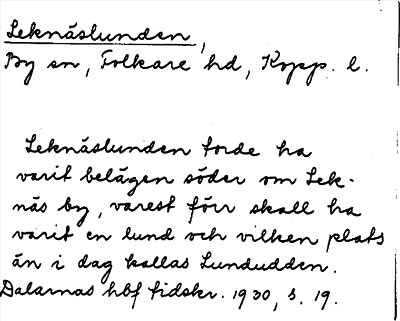 Leknäslunden,
By sn, Folkare hd, Kopp. l.
Leknäslunden torde ha
varit belägen söder om Lek-
näs by, varest förr skall ha
varit en lund och vilken plats
än i dag kallas Lundudden.
Dalarnas hbf tidskr. 1930, s. 19.